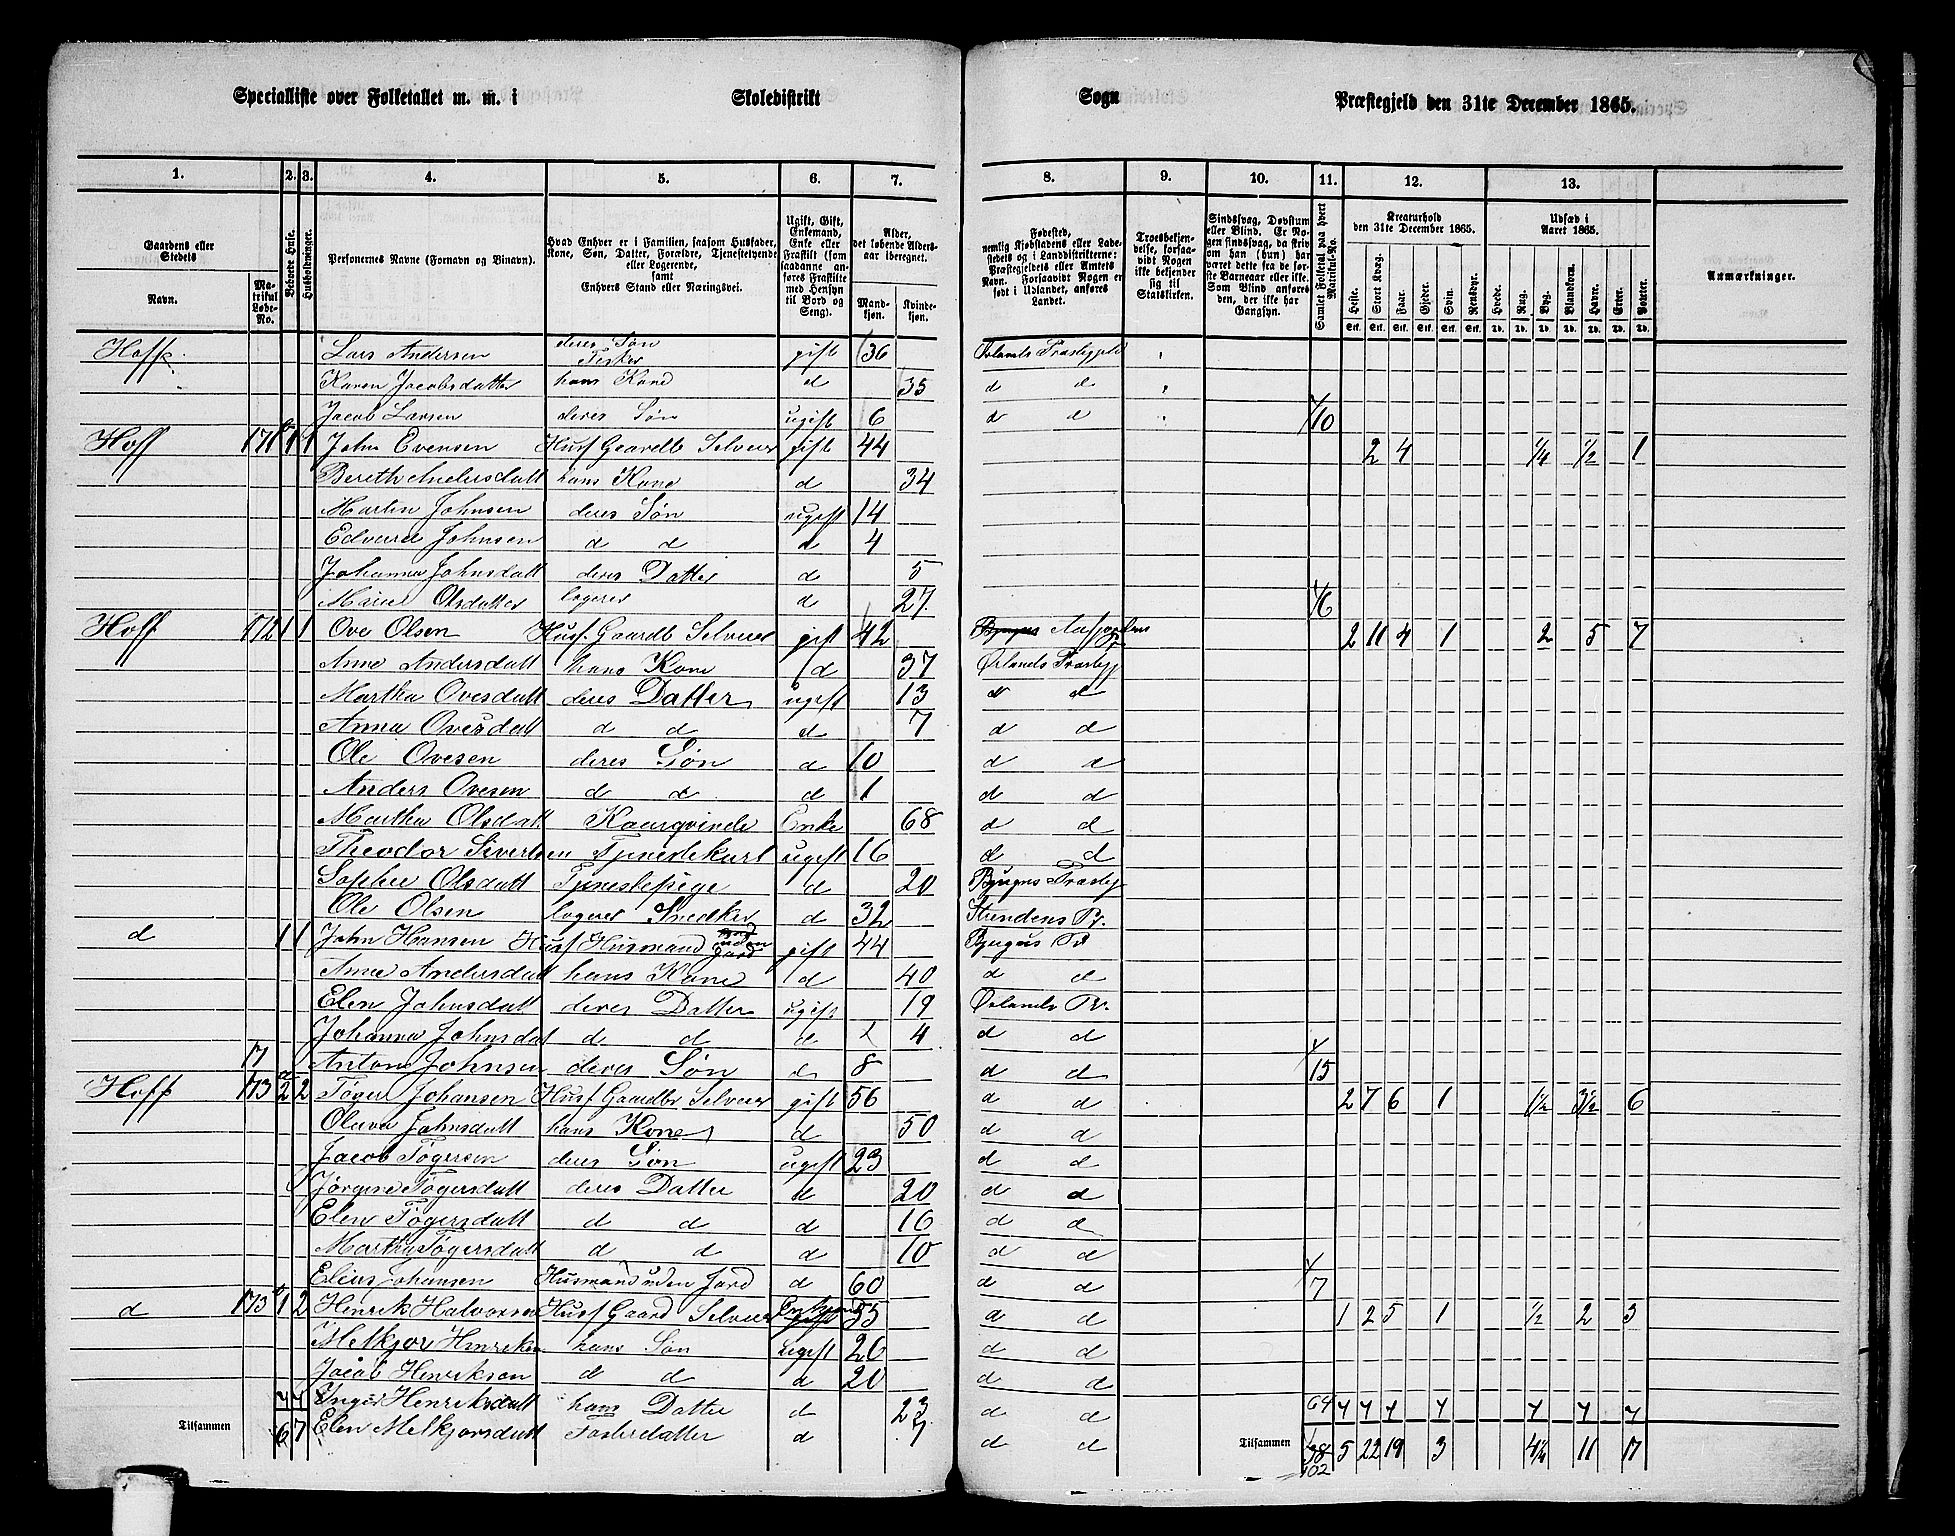 Specialliste over Folketallet m. m. i Skoledistrikt Sogn Præstegjeld den 31te December 1865.
1. 2. 3. 4. 5. 6. 7. 8. 9. 10. 11. 12. 13.
Gaardens eller Stedets
Navn.
Matrikul Løbe-No.
Beboede Huse.
Husholdninger.
Personernes Navne (Fornavn og Binavn).
Hvad Enhver er i Familien, saasom Husfader, Kone, Søn, Datter, Forældre, Tjenestetyende eller Logerende, samt Enhvers Stand eller Næringsvei.
Ugift, Gift, Enkemand, Enke eller Fraskilt (som saadanne anføres Fraskilte med Hensyn til Bord og Seng).
Alder, det løbende Alders-aar iberegnet.
Mand-kjøn. Kvinde-kjøn.
Fødested, nemlig Kjøbstadens eller Ladestedets og i Landdistrikterne: Præstegjeldets eller Amtets Navn. Forsaavidt Nogen er født i Udlandet, anføres Landet.
Troesbekjendelse, forsaavidt Nogen ikke bekjender sig til Statskirken.
Sindssvag, Døvstum eller Blind. Er Nogen sindssvag, da skriv om han (hun) har været dette fra de første Barneaar eller ikke. Som Blind anføres den, der ikke har Gangsyn.
Samlet Folketal paa hvert Matrikul-No.
Kreaturhold den 31te December 1865.
Heste. Stort Kvæg. Faar. Gjeder. Svin. Rensdyr.
Udsæd i Aaret 1865.
Hvede. Rug. Byg. Blandkorn. Havre. Erter. Poteter.
Anmærkninger.
Hoff Lars Andersen deres Søn gift 36 Ørlands Præstegjeld
Karen Jacobsdatter hans Kone d 35 d d
Jacob Larsen deres Søn ugift 6 d d 10
Hoff 171 1 1 John Evensen Husf Gaardb Selveier gift 44 2 4 1/4 1/2 1
Bereth Andersdatt hans Kone d 34
Martin Johnsen deres Søn ugift 14
Edvard Johnsen d d d 4
Johanna Johnsdatt deres Datter d 5
Marie Olsdatter logerer d 27 6
Hoff 172 1 1 Ove Olsen Husf. Gaardb Selveier gift 42 Aafjordens 2 11 4 1 2 5 7
Anne Andersdatt hans Kone d 37 Ørlands Præstegj
Martha Ovesdatt deres Datter ugift 13 d d
Anna Ovesdatt d d d 7 d d
Ole Ovesen deres Søn d 10 d d
Anders Ovesen d d d 1 d d
Martha Olsdatt Kaarqvinde Enke 68 d d
Theodor Sivertsen Tjenestekarl ugift 16 d d
Sophie Olsdatt Tjenestepige d 20 Bjugns Præstegj
Ole Olsen logerer Snedker d 32 Strindens Pr.
d 1 1 John Hansen Husf Husmand uden Jord gift 44 Bjugns Pr
Anne Andersdatt hans Kone d 40 d d
Elen Johnsdatt deres Datter ugift 19 Ørlands Pr.
Johanna Johnsdat d d d 4 d d
Anton Johnsen deres Søn d 8 d d 15
Hoff 173 2 2 Tøger Johansen Husf Gaardbr Selveier gift 56 d d 2 7 6 1 1 1/2 3 1/2 6
Oluva Johnsdatt hans Kone d 50 d d
Jacob Tøgersen deres Søn ugift 23 d d
Jørgine Tøgersdatt deres Datter d 20 d d
Elen Tøgersdatt d d d 16 d d
Martha Tøgersdatt d d d 10 d d
Elias Johansen Husmand uden Jord d 60 d d 7
d 173 1 2 Henrik Halvorsen Husf Gaard Selveier Enkemand 55 d d 1 2 5 1 1/2 2 3
Melkjor Henriksen hans Søn ugift 26 d d
Jacob Henriksen d d d 20 d d
Inger Henriksdatt hans Datter d 23 d d 64
Tilsammen 6 7 Elen Melkjorsdatt Fosterdatter d 7 d d Tilsammen 38 5 22 19 3 4 1/4 11 17
102